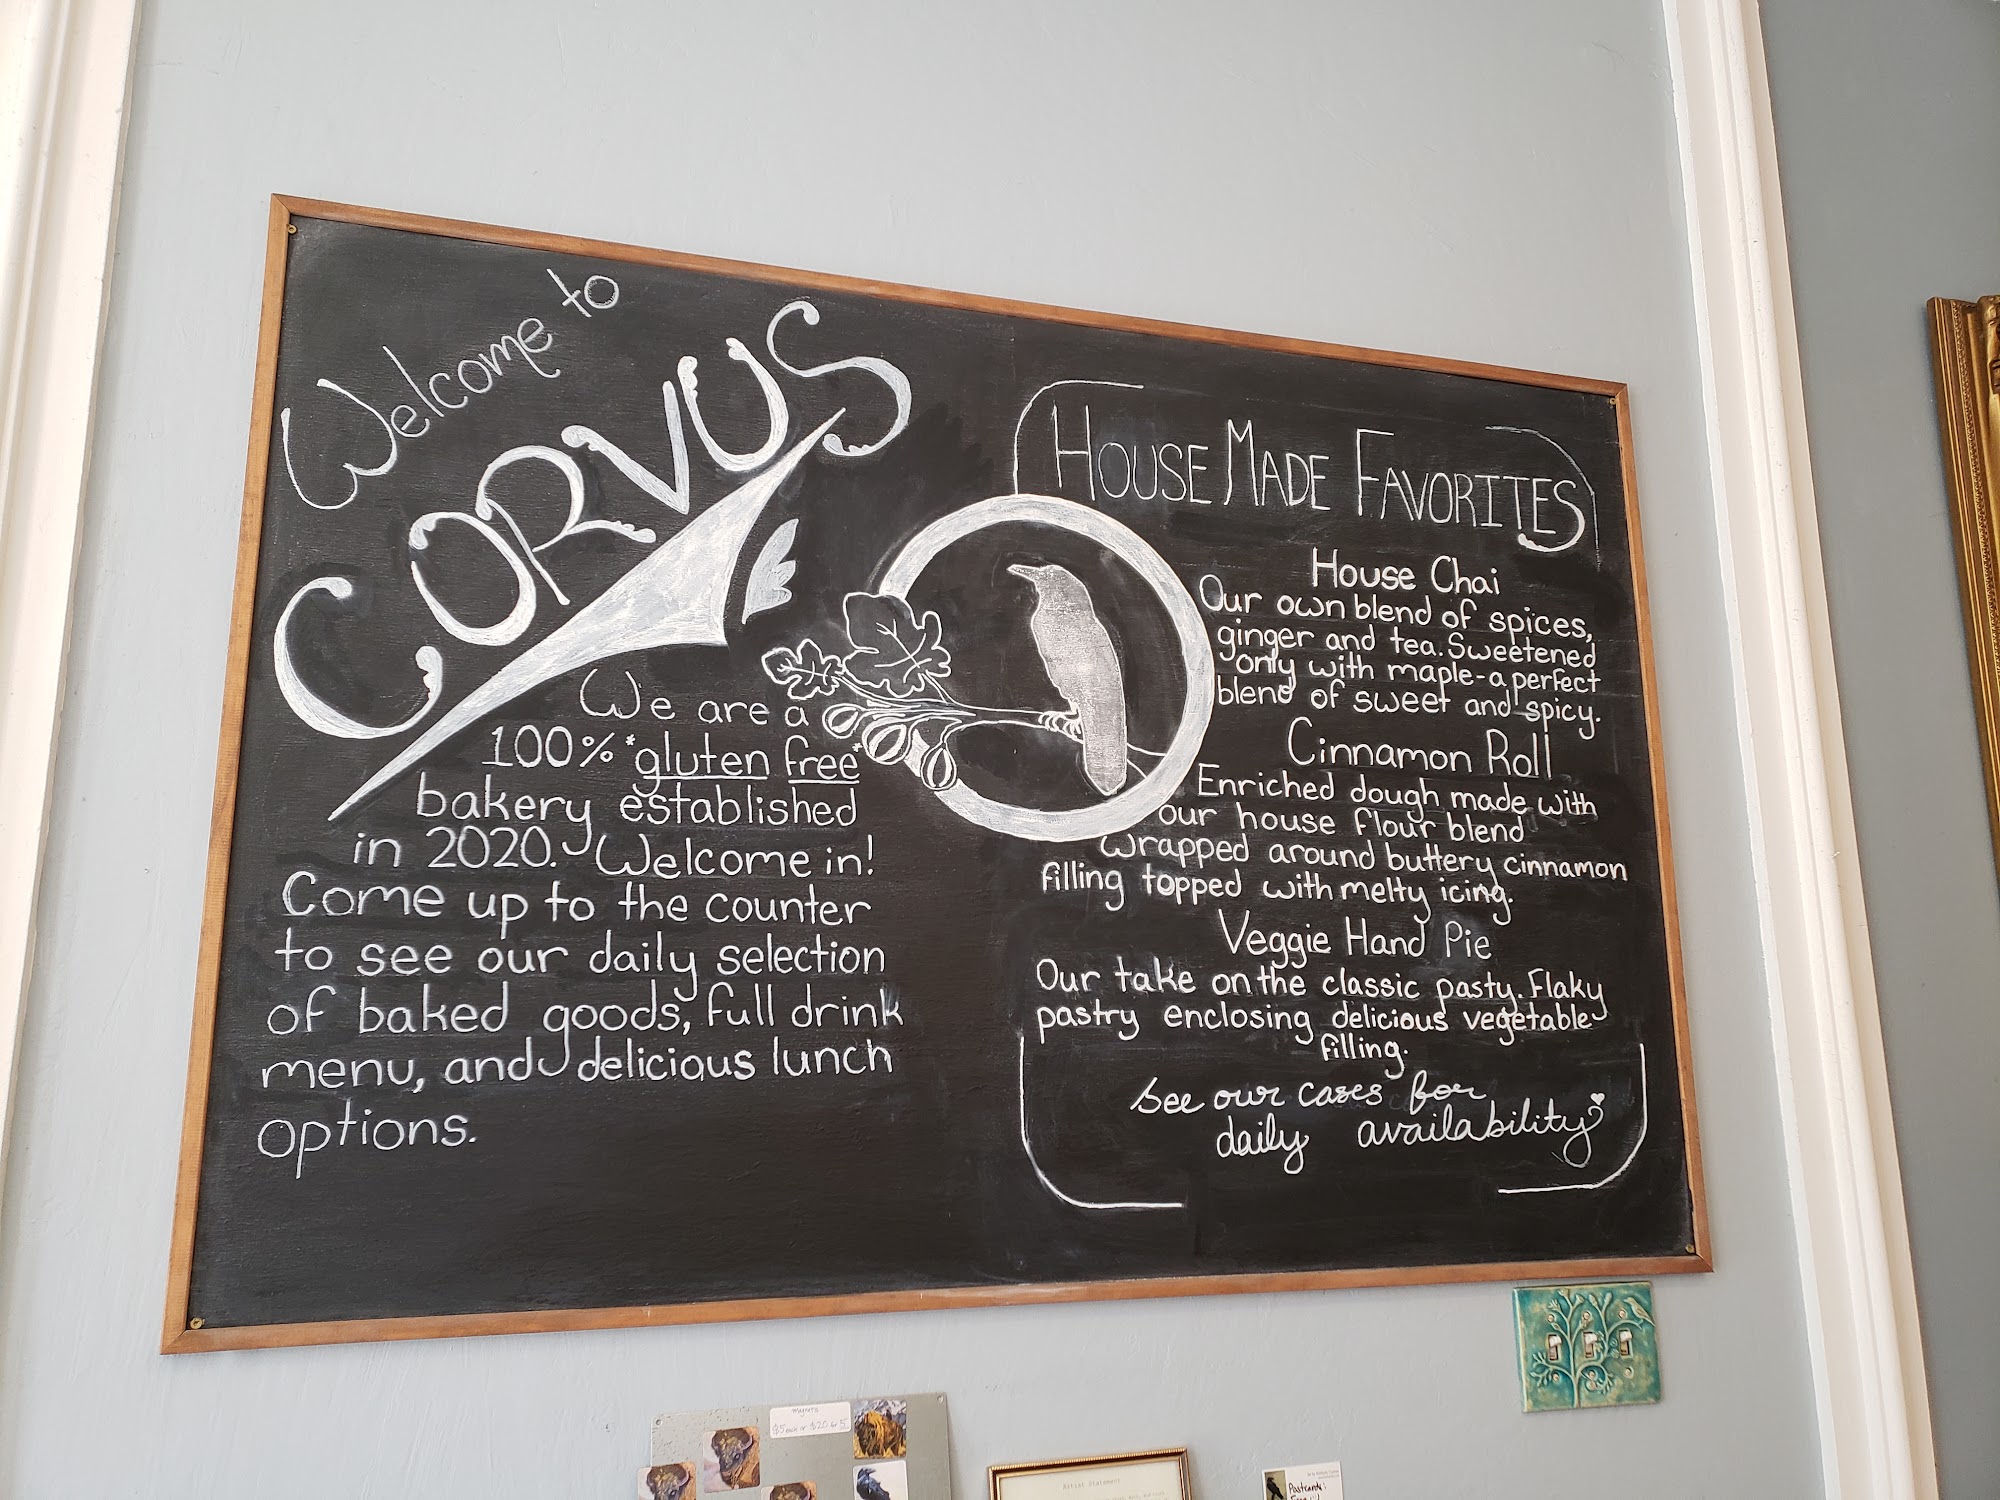 Welcome to
CORVUS
We are a
100% *gluten free*
bakery established
in 2020. Welcome in!
Come up to the counter
to see our daily selection
of baked goods, full drink
menu, and delicious lunch
options.
HOUSE MADE FAVORITES
House Chai
Our own blend of spices,
ginger and tea. Sweetened
only with maple - a perfect
blend of sweet and spicy.
Cinnamon Roll
Enriched dough made with
our house flour blend
wrapped around buttery cinnamon
filling topped with melty icing.
Veggie Hand Pie
Our take on the classic pasty. Flaky
pastry enclosing delicious vegetable
filling.
See our cases for
daily availability
magnets
$5 each or $20 for 5
Artist Statement
Postcards: